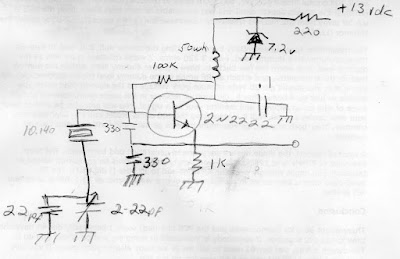 +13 vdc
220
50uh
7.2v
100K
.1
10.140
330
2N2222
330
1K
22pf
2-22pf